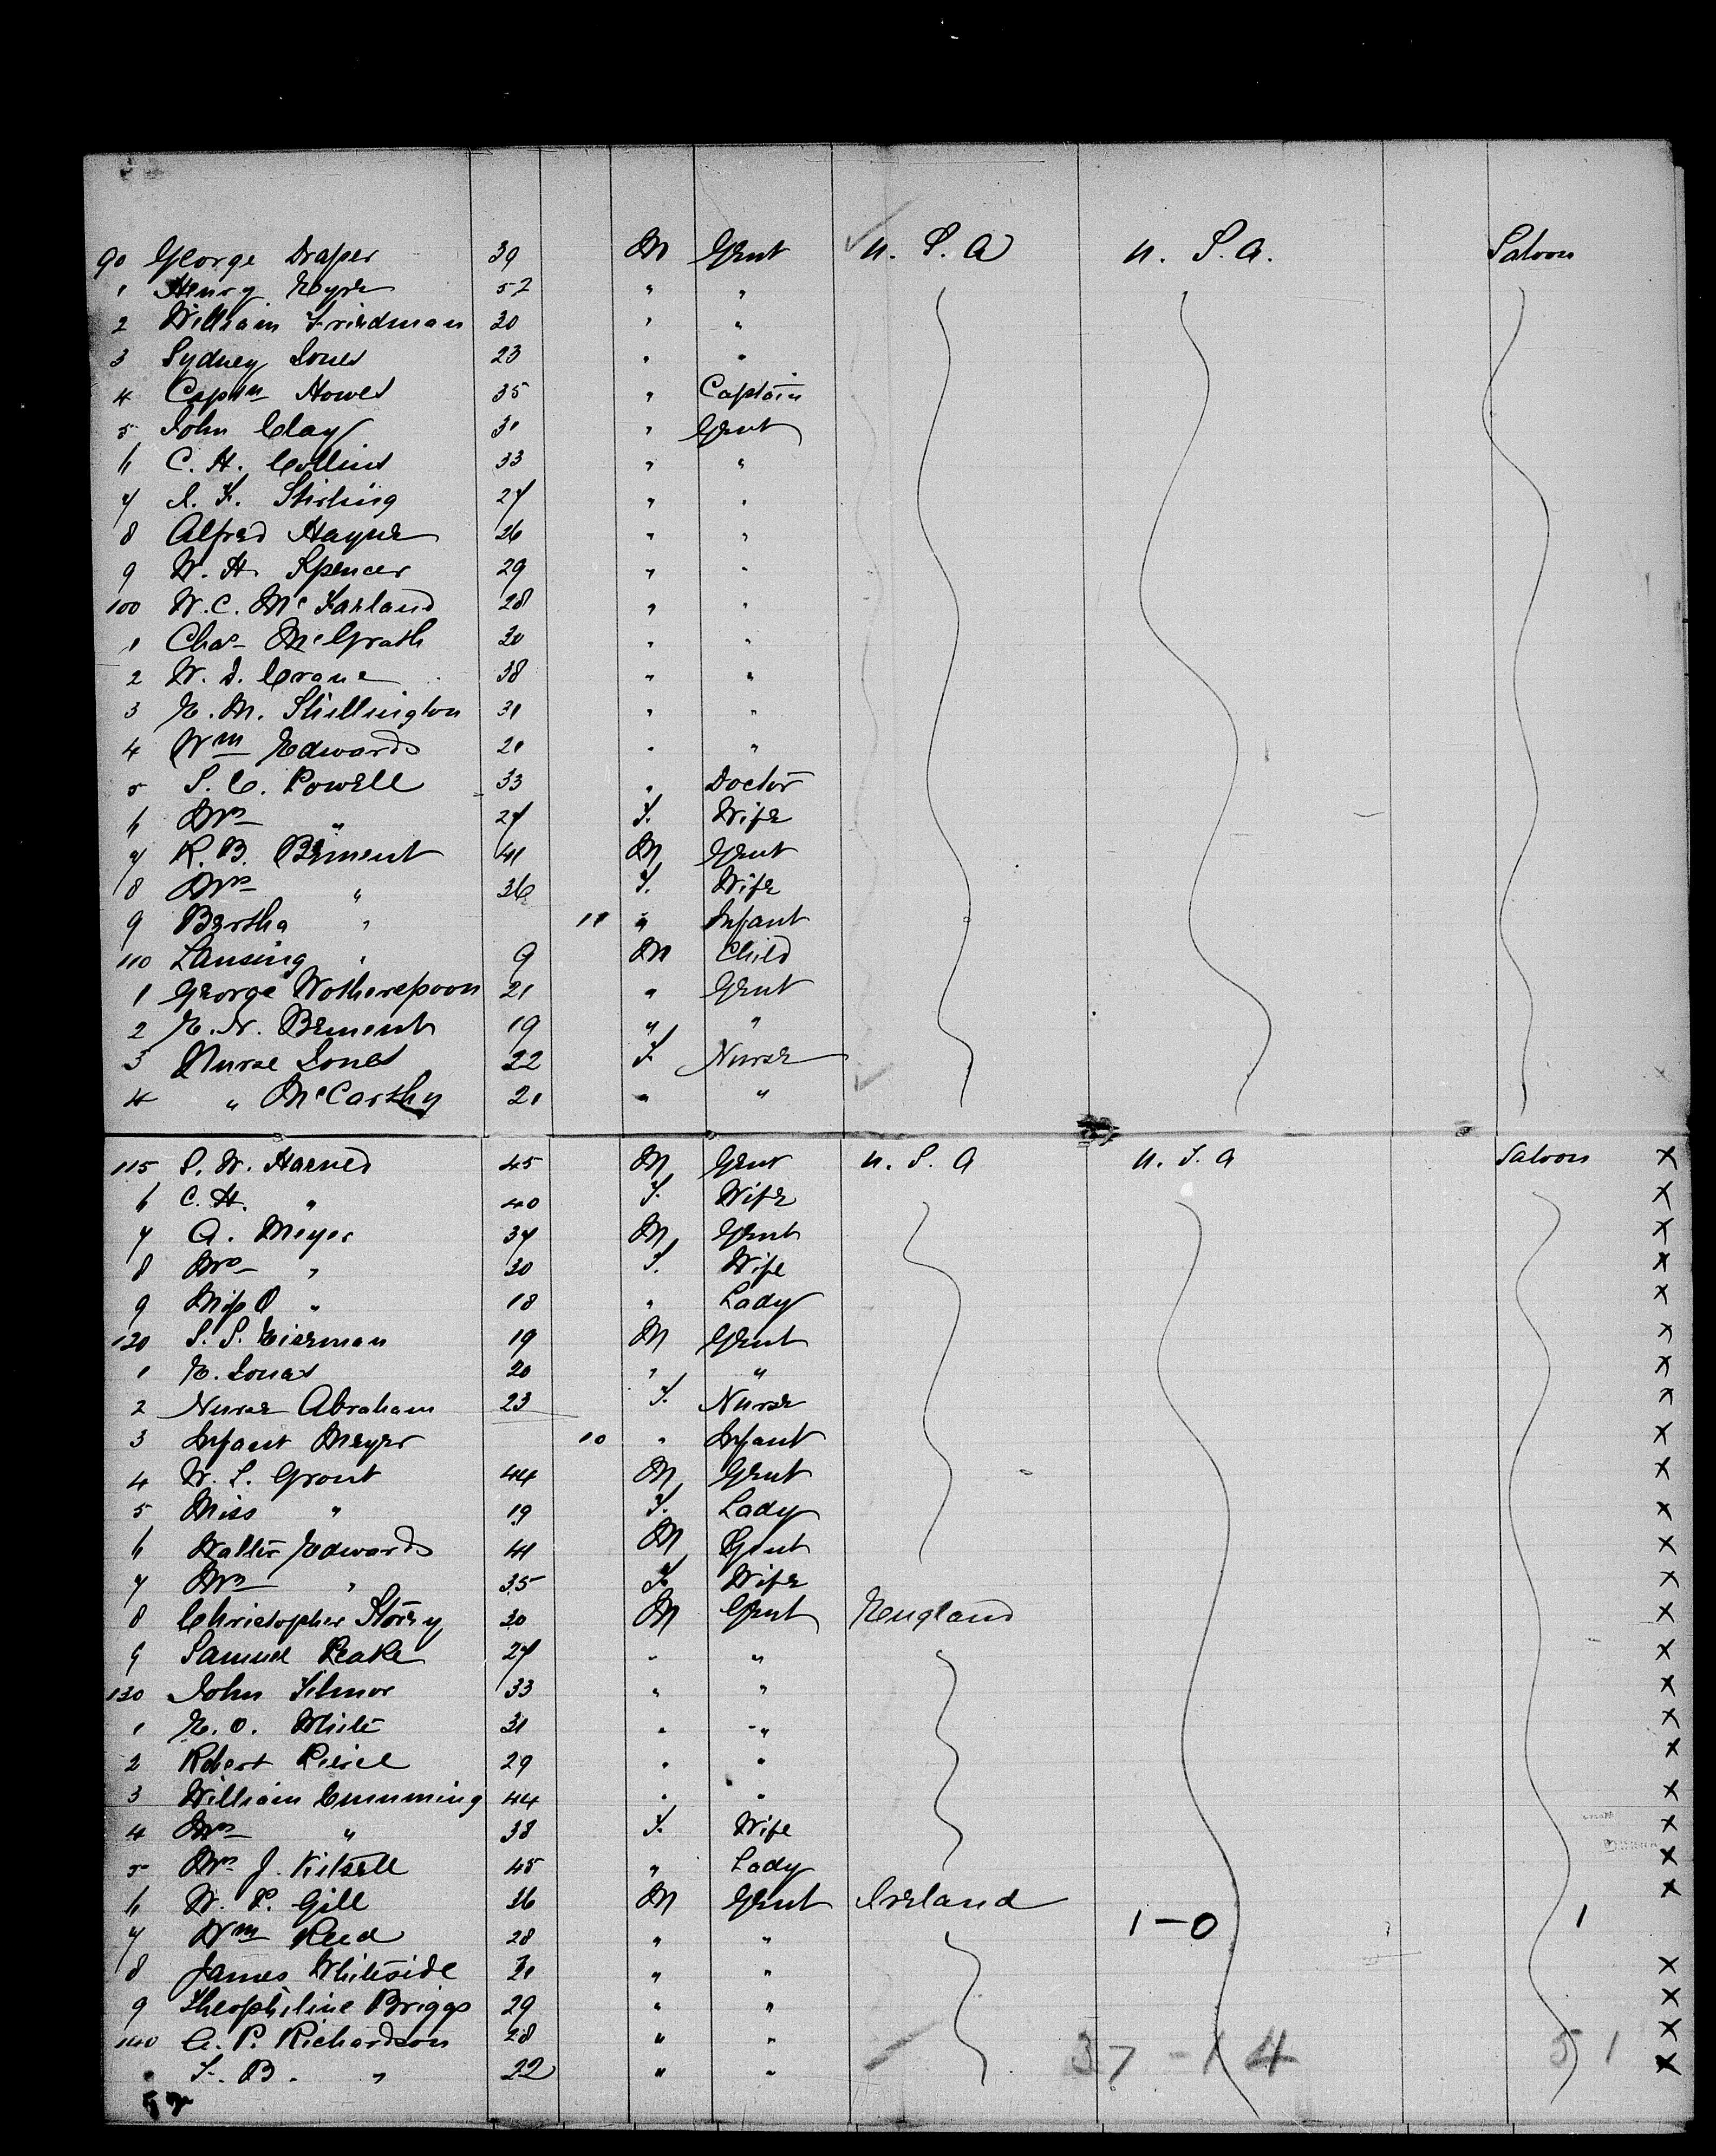 90 George Draper 39 M Gent U. S. A U. S. A. Saloon
1 Henry Eyre 52 " "
2 William Friedman 30 " "
3 Sydney Jones 23 " "
4 Captn Howes 35 " Captain
5 John Clay 31 " Gent
6 C. H. Collins 33 " "
7 J. F. Stirling 27 " "
8 Alfred Hayne 26 " "
9 W. H. Spencer 29 " "
100 W. C. McFarland 28 " "
1 Chas McGrath 30 " "
2 W. J. Crane 38 " "
3 E. M. Shillington 31 " "
4 Wm Edwards 21 " "
5 S. C. Powell 33 " Doctor
6 Mrs " 27 F. Wife
7 R. B. Bement 41 M Gent
8 Mrs " 36 F. Wife
9 Bertha " 11 " Infant
110 Lansing " 9 M Child
1 George Wotherspoon 21 " Gent
2 E. N. Bement 19 " "
3 Nurse Jones 22 F. Nurse
4 " McCarthy 21 " "
115 S. W. Harned 45 M Gent U. S. A U. S. A Saloon X
6 C. H. " 40 F. Wife X
7 A. Meyer 37 M Gent X
8 Mrs " 30 F. Wife X
9 Miss O " 18 " Lady X
120 S. S. Eiseman 19 M Gent X
1 E. Jonas 20 " " X
2 Nurse Abraham 23 F. Nurse X
3 Infant Meyer 10 " Infant X
4 W. L. Grout 44 M Gent X
5 Miss " 19 F. Lady X
6 Walter Edwards 41 M Gent X
7 Mrs " 35 F. Wife X
8 Christopher Storey 30 M Gent England X
9 Samuel Peake 27 " " X
130 John Filmor 33 " " X
1 E. O. White 31 " " X
2 Robert Pierce 29 " " X
3 William Cumming 44 " " X
4 Mrs " 38 F. Wife X
5 Mrs J. 45 " Lady X
6 W. P. Gill 36 M Gent Ireland X
7 Wm Reed 28 " " 1-0 1
8 James Whiteside 31 " " X
9 Theophiline Briggs 29 " " X
140 C. P. Richardson 28 " " X
F. B. " 22 " " 37 - 14 51 X
52